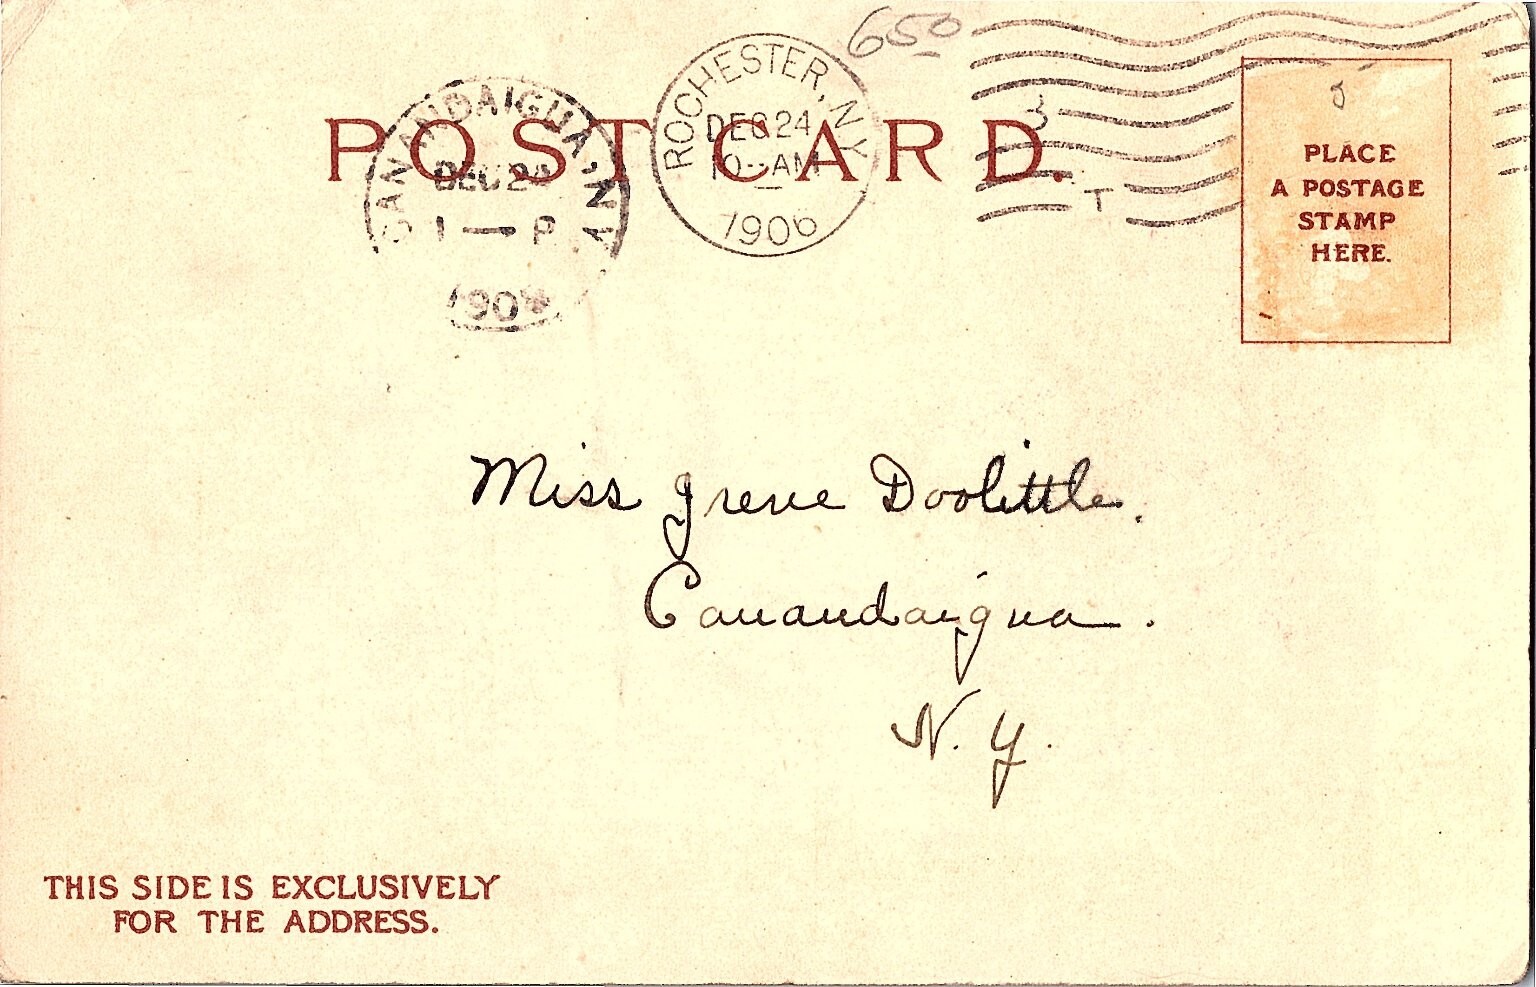 650
POST CARD.
CANANDAIGUA, N.Y.
DEC 24
1 — P
190
ROCHESTER, N.Y.
DEC 24
10-AM
1906
3
T
PLACE
A POSTAGE
STAMP
HERE.
Miss Irene Doolittle.
Canandaigua.
N. Y.
THIS SIDE IS EXCLUSIVELY
FOR THE ADDRESS.